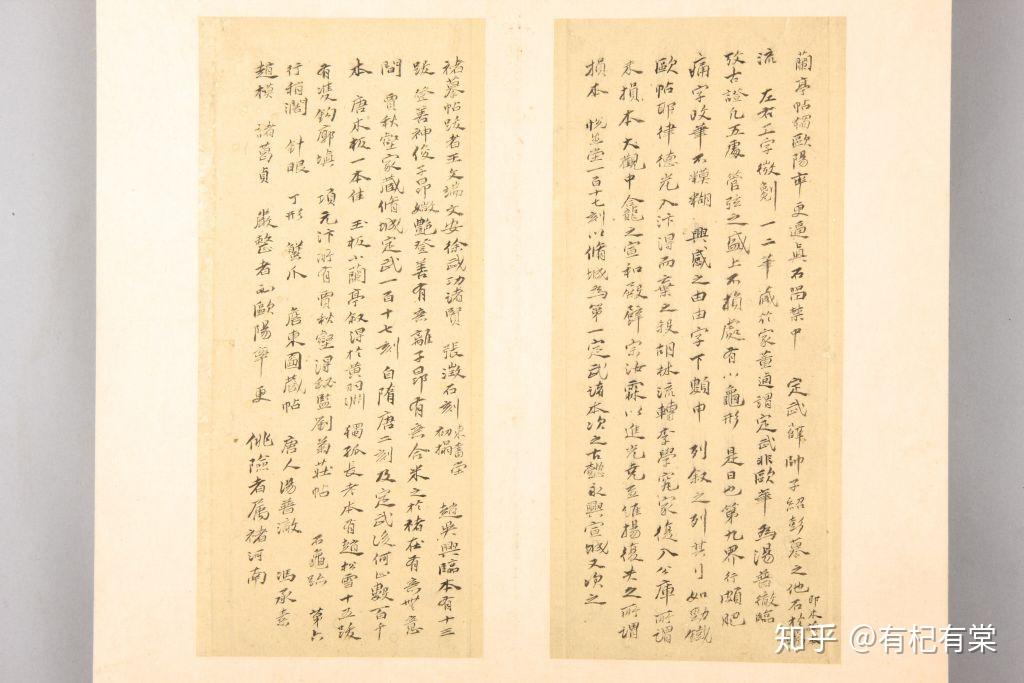 蘭亭帖獨歐陽率更逼眞石留禁中　定武薛帥子紹彭摹之他石於
流　左右工字微劖　一二筆藏於家董逌謂定武非歐筆為湯普徹臨
攷古證凡五處　管弦之盛上不損處有小龜形　是日也第九界行頗肥
痛字改筆不糢糊　興感之由由字下類申　列叙之列其刂如勁鐵
歐帖耶律德光入汴得而棄之殺胡林流轉李學究家復入公庫所謂
未損本大觀中龕之宣和殿壁宗汝霖以進光堯至維揚復失之所謂
損本　悅生堂一百十七刻以脩城為第一定武諸本次之古懿永興宣城又次之
褚摹帖跋者王文端文安徐武功諸賢　張澂石刻　東書堂初搨　趙吳興臨本有十三
跋　登善神俊子昂媺艷登善有無離子昂有無合米之於褚在有無無意
間　賈秋壑家藏脩城定武一百十七刻自隋唐二刻及定武後何止數百千
本　唐木板一本佳　玉板小蘭亭叙得於黃羽淵　獨孤長老本有趙松雪十五跋
有雙鈎廓塡　項元汴所有賈秋壑得秘監劉菊莊帖　石龜趺　第六
行稍濶　針眼　丁形　蟹爪　詹東圖藏帖　唐人湯普澈　馮承素
趙模　諸葛貞　嚴整者而歐陽率更　佻險者属褚河南
知乎 @有杞有棠